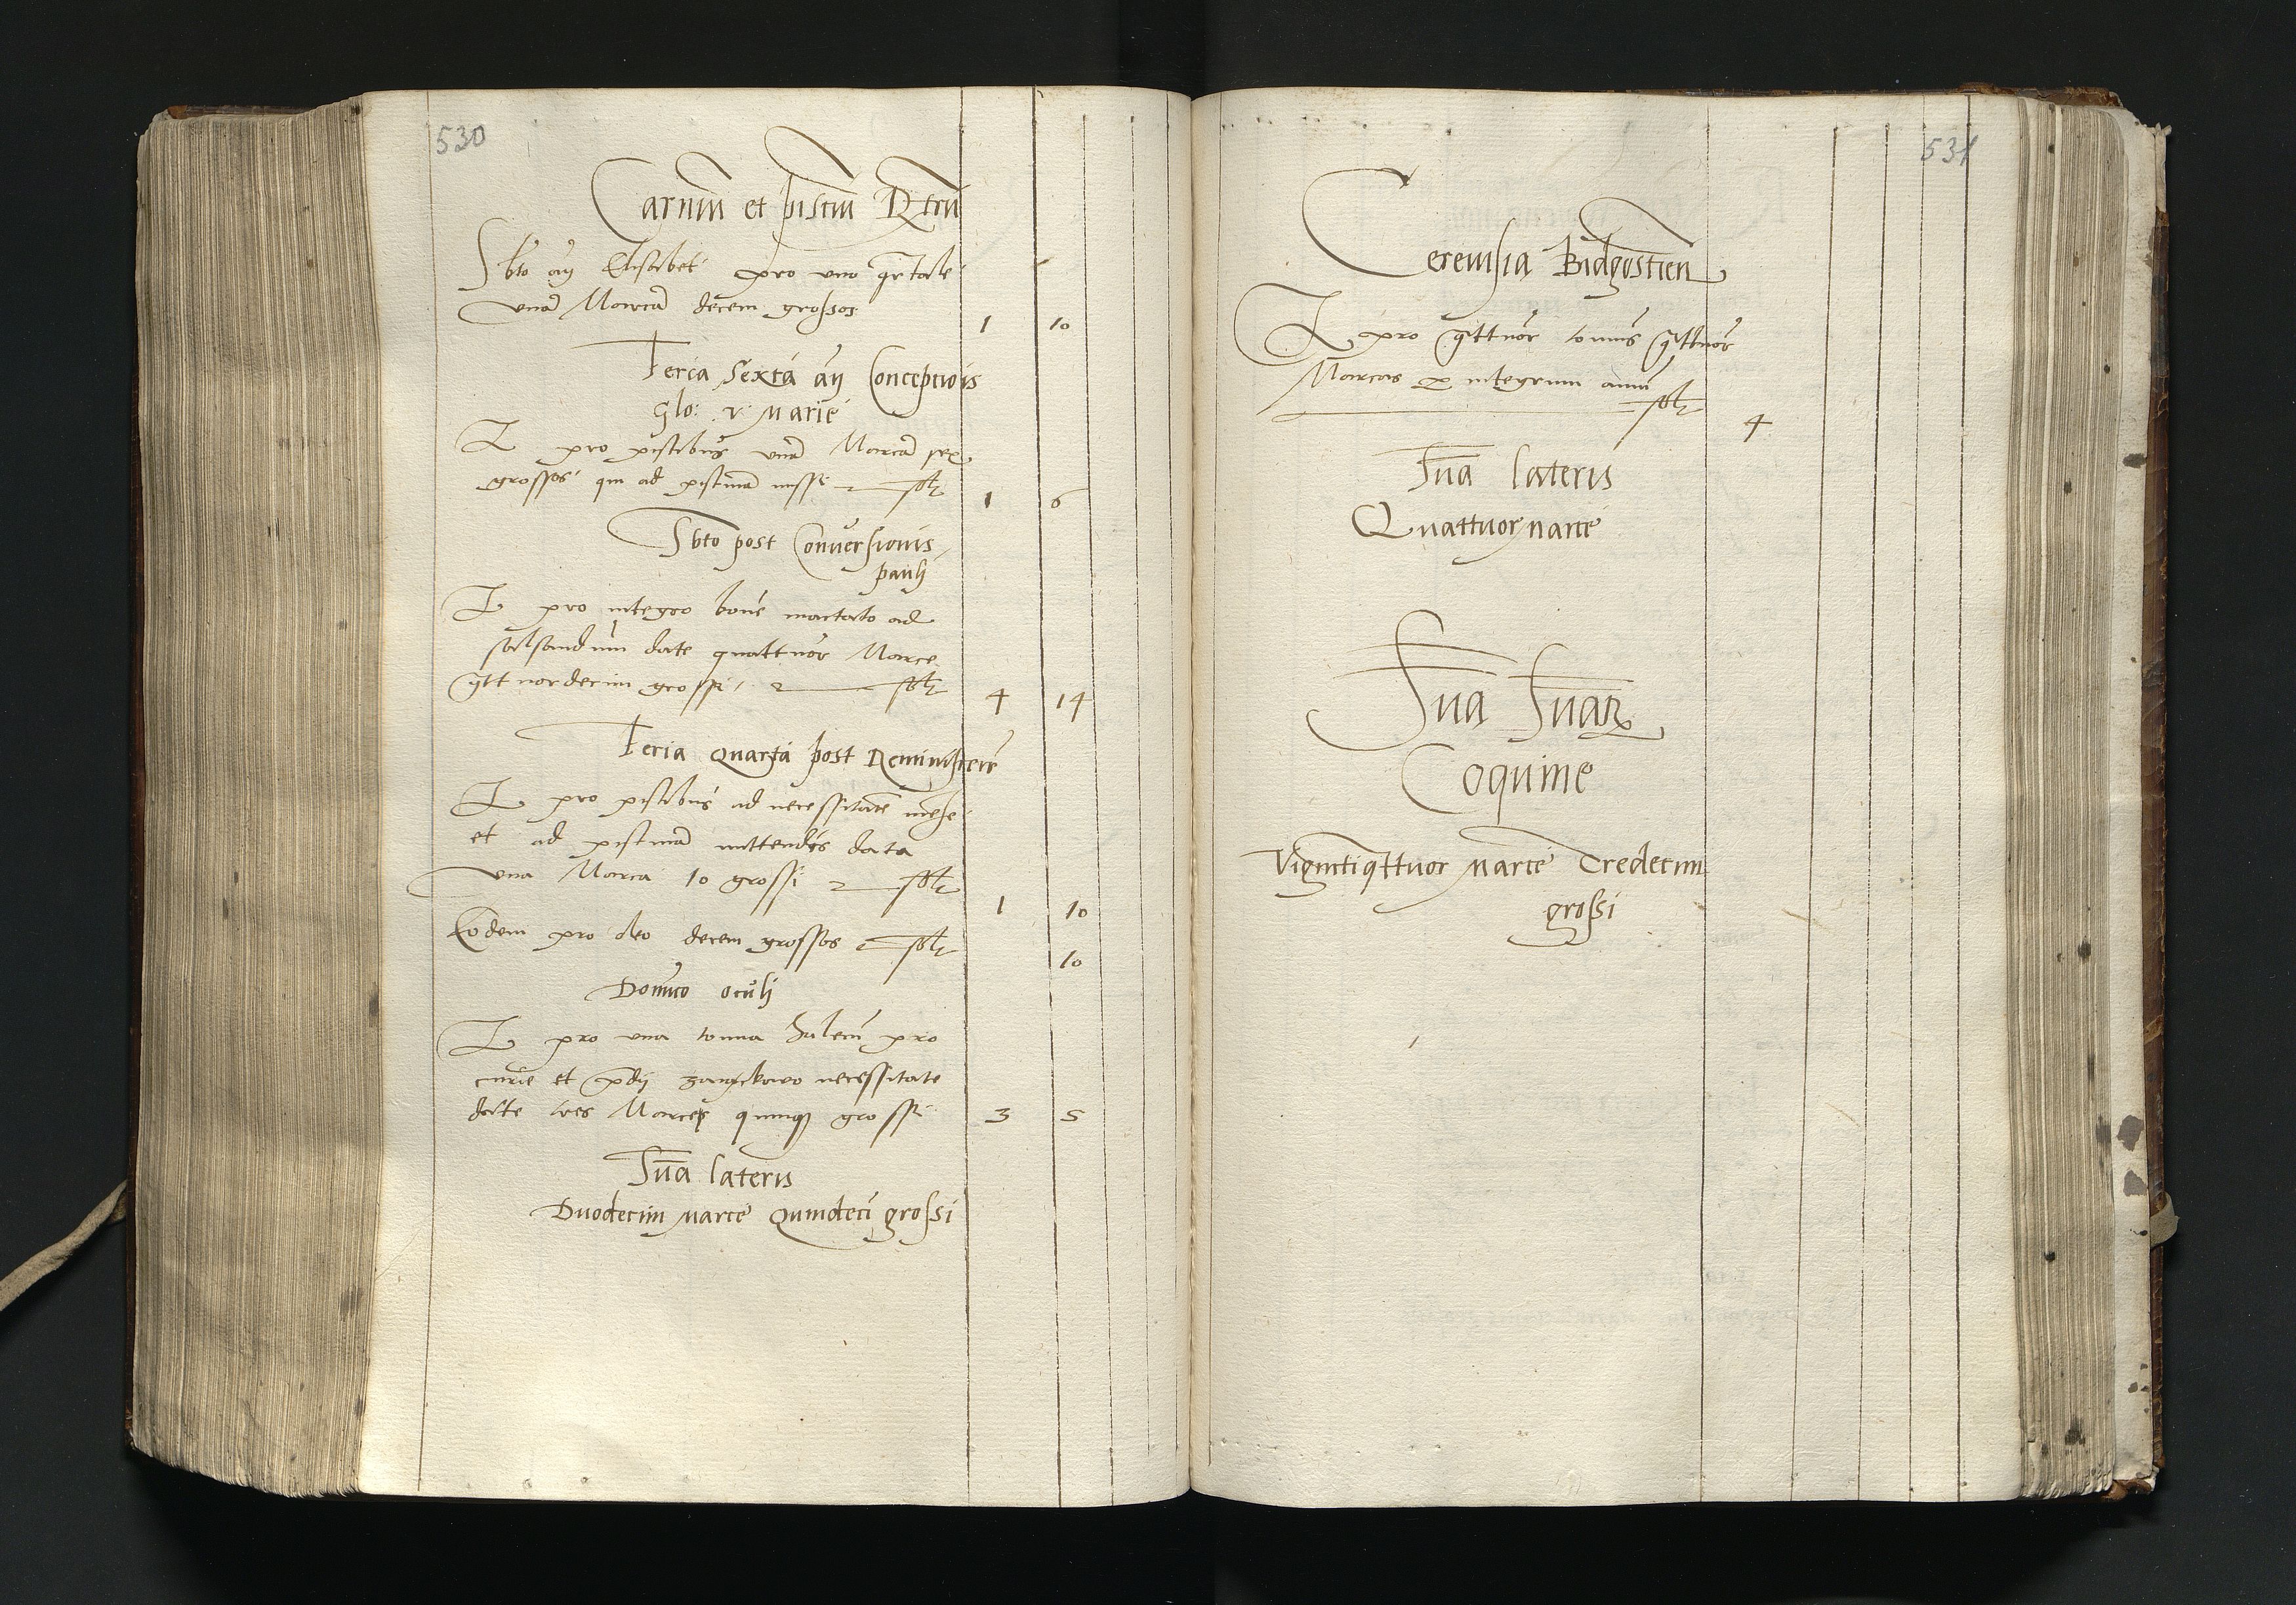 530
Carniū et pisciū Rgtrū
Sbto añ Elisabet pro uno qrtale
unā Marcā decem grossos 1 10
Feria Sexta añ Conceptiois
Glo: v: Marie
It pro piscibus unā Marcā sex
grossos qui ad piscinā missi solt 1 6
Sbto post Conversionis
pauli
It pro integro bove mactato ad
salsandum date quattuor Marce
qttuordecim grossi solt 4 14
Feria Quarta post Reminiscere
It pro piscibus ad necessitatē mēse
et ad piscinā mittendis data
una Marca 10 grossi solt 1 10
Eodem pro oleo decem grossos solt 10
Domico oculi
It pro una tonna halecū pro
curie et pdij necessitate
date tres Marce quinq grossi 3 5
Sūa lateris
Duodecim Marce Quindeci grossi
531
Cerevisia Bidgostien
It pro qttuor tonnis qttuor
Marcas p integrum annū
solt 4
Sūa lateris
Quattuor Marce
Sūa Sūarʒ
Coquine
Vigintiqttuor Marce Tredecim
grossi